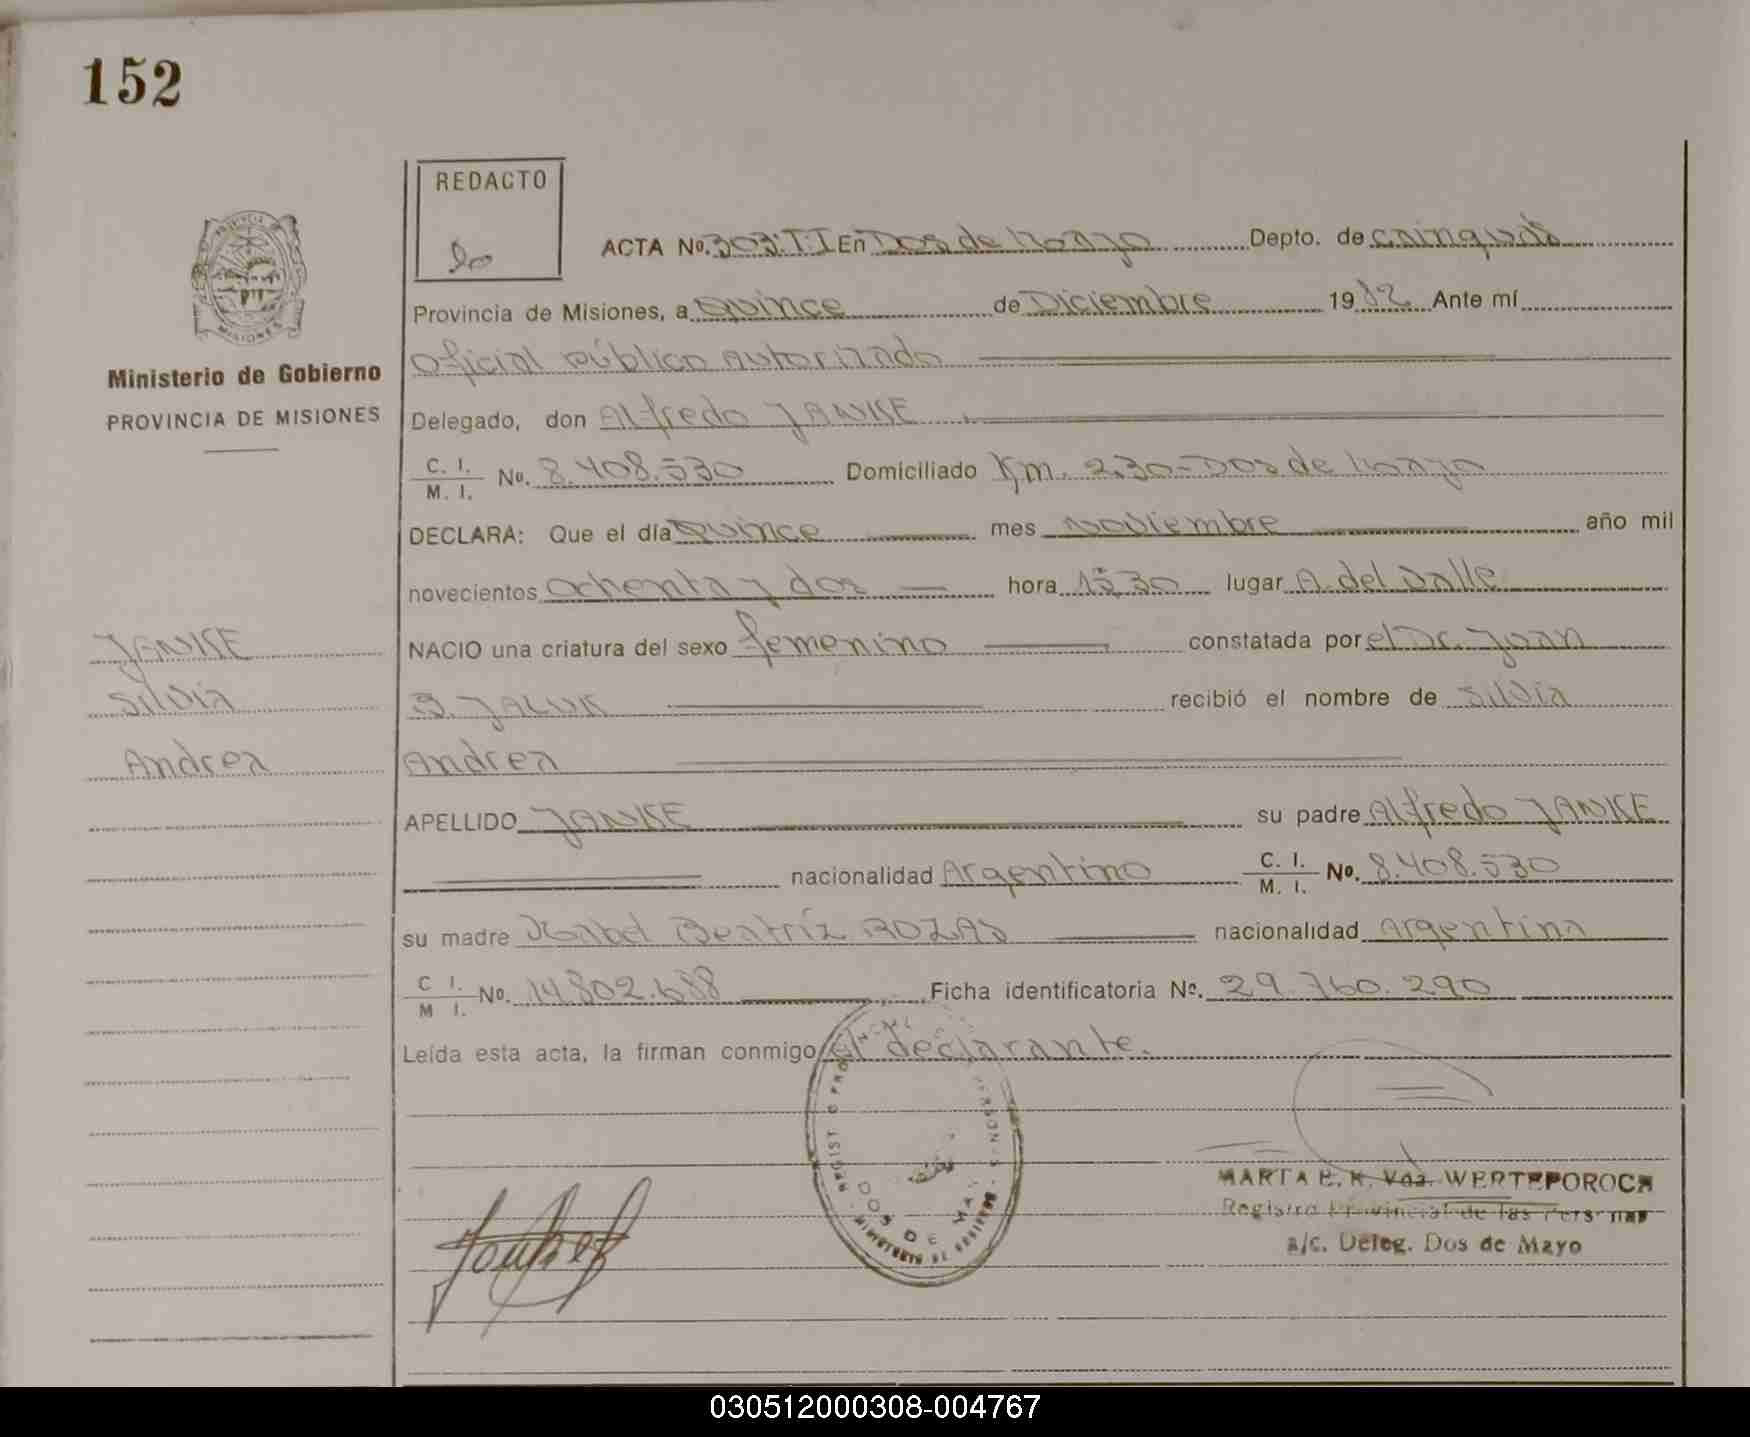 152
REDACTO
ACTA Nº. 303. T. I En Dos de Mayo Depto. de Cainguás
Provincia de Misiones, a Quince de Diciembre 1982 Ante mí
Oficial Público Autorizado
Ministerio de Gobierno
PROVINCIA DE MISIONES
Delegado, don Alfredo JANKE
C. I.
M. I. No. 8.408.530 Domiciliado Km. 230-Dos de Mayo
DECLARA: Que el día Quince mes Noviembre año mil
novecientos ochenta y dos hora 15,30 lugar A. del Valle
JANKE
NACIO una criatura del sexo femenino constatada por el Dr. Juan
Silvia
recibió el nombre de Silvia
Andrea
Andrea
APELLIDO JANKE su padre Alfredo JANKE
nacionalidad Argentino C. I.
M. I. No. 8.408.530
su madre Isabel Beatríz ROZAS nacionalidad Argentina
C I.
M I. No. 14.802.688 Ficha identificatoria Nº. 29.760.290
Leída esta acta, la firman conmigo el declarante.
DOS DE MAYO
MARTA E. K. Vda. WERTEPOROCH
Registro Provincial de las Personas
a/c. Deleg. Dos de Mayo
030512000308-004767